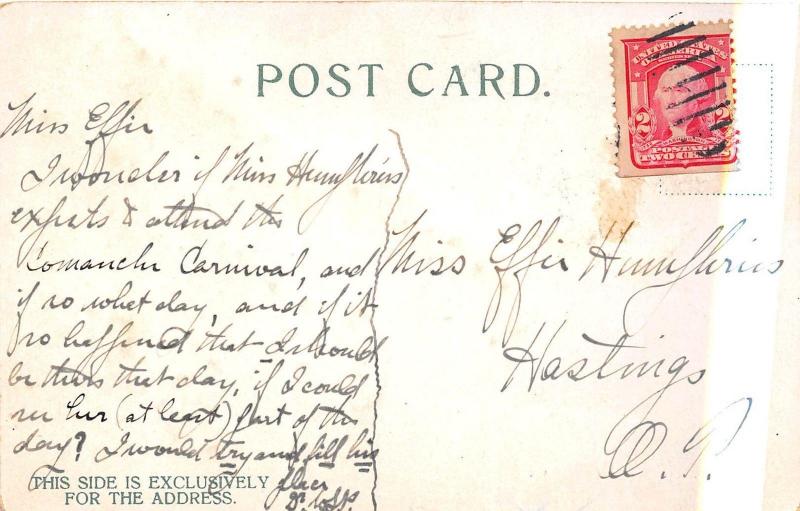 POST CARD.
UNITED STATES
OF AMERICA
2 2
POSTAGE
TWO CENTS
Miss Effie
I wonder if Miss Humphries
expects to attend the
Comanche Carnival, and
if so what day, and if it
so happened that I should
be there that day, if I could
see her (at least) part of the
day? I would try and fill his
place
Miss Effie Humphries
Hastings
O. T.
THIS SIDE IS EXCLUSIVELY
FOR THE ADDRESS.